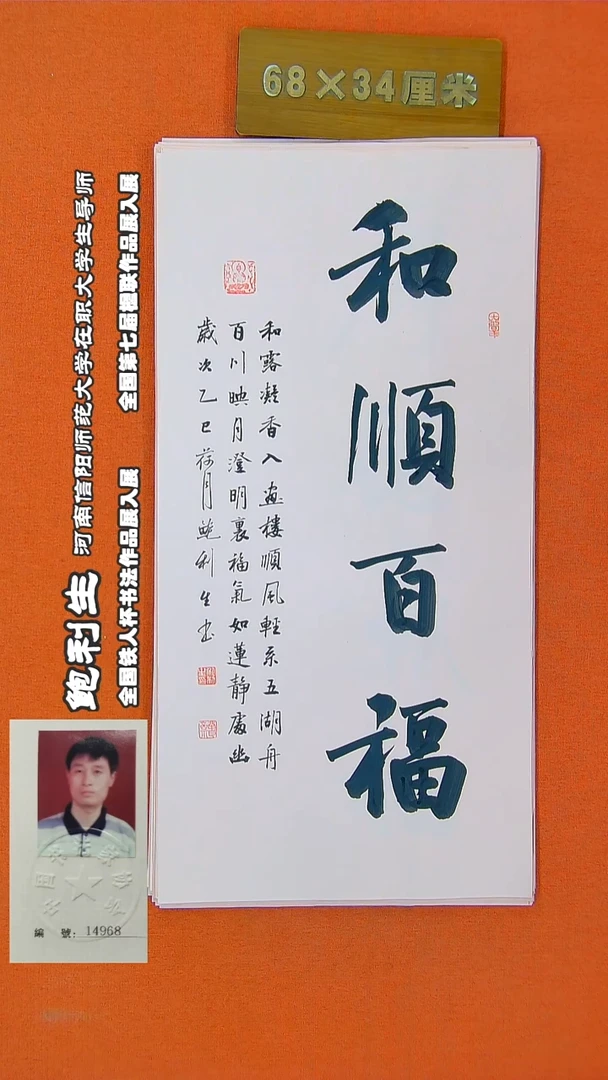 68×34厘米
和順百福
和露凝香入畫樓順風輕系五湖舟
百川映月澄明裏福氣如蓮靜處幽
歲次乙巳荷月鲍利生书
鲍利生 河南信阳师范大学在职大学生导师
全国铁人杯书法作品展入展 全国第七届楹联作品展入展
編號：14968